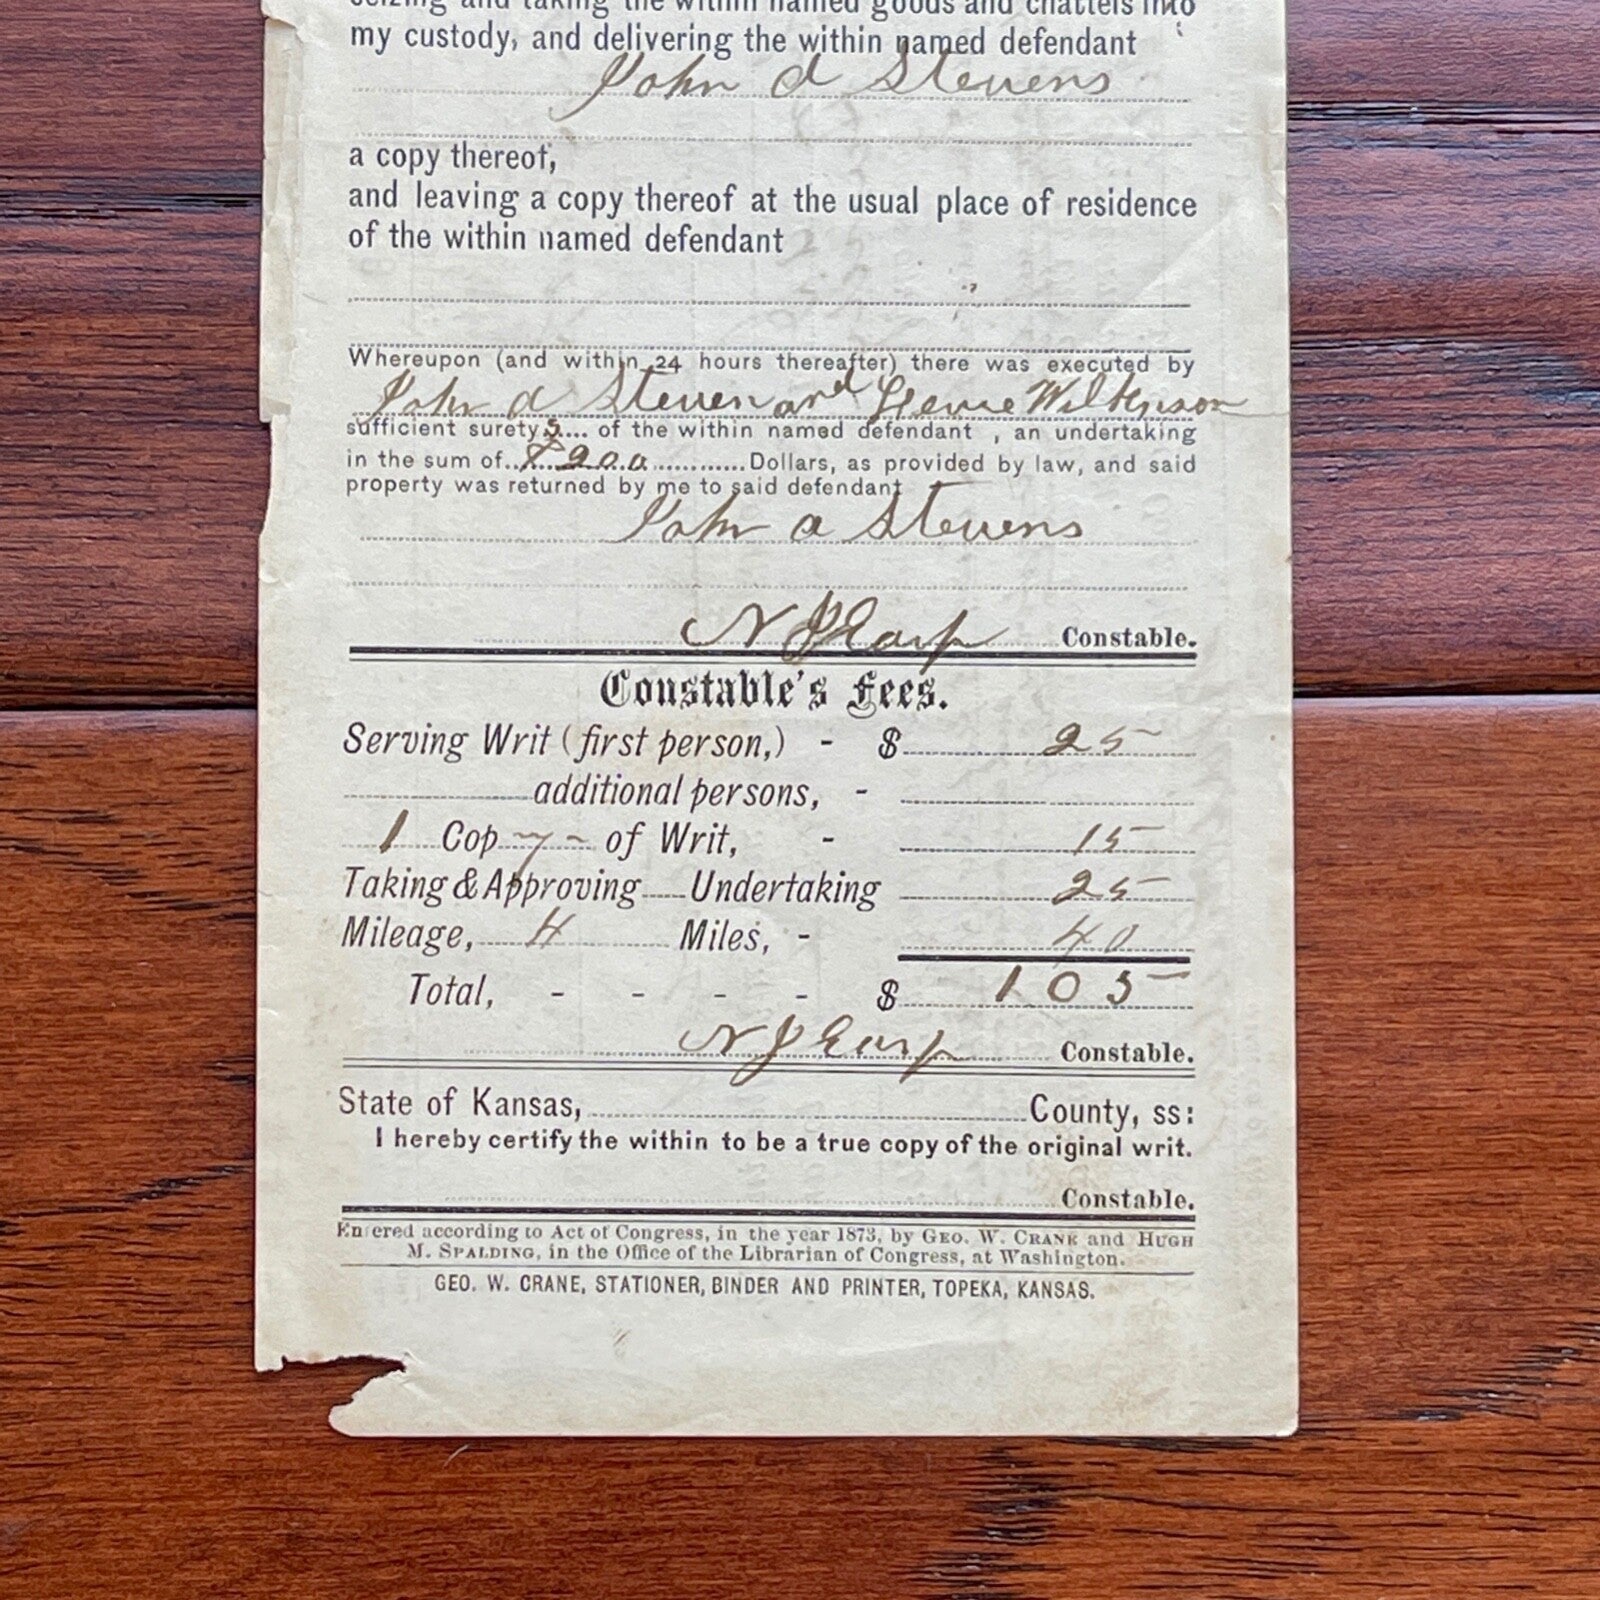 seizing and taking the within named goods and chattels into
my custody, and delivering the within named defendant
John A Stevens
a copy thereof,
and leaving a copy thereof at the usual place of residence
of the within named defendant
Whereupon (and within 24 hours thereafter) there was executed by
John A Steven and Wilkinson
sufficient surety s .... of the within named defendant , an undertaking
in the sum of..$200............Dollars, as provided by law, and said
property was returned by me to said defendant
John A Stevens
N J Earp Constable.
Constable's Fees.
Serving Writ (first person,) - $ 25
additional persons, -
1 Copy of Writ, - 15
Taking & Approving Undertaking 25
Mileage, 4 Miles, - 40
Total, - - - - $ 1 0 5
N J Earp Constable.
State of Kansas, County, ss:
I hereby certify the within to be a true copy of the original writ.
Constable.
Entered according to Act of Congress, in the year 1873, by GEO. W. CRANE and HUGH
M. SPALDING, in the Office of the Librarian of Congress, at Washington.
GEO. W. CRANE, STATIONER, BINDER AND PRINTER, TOPEKA, KANSAS.